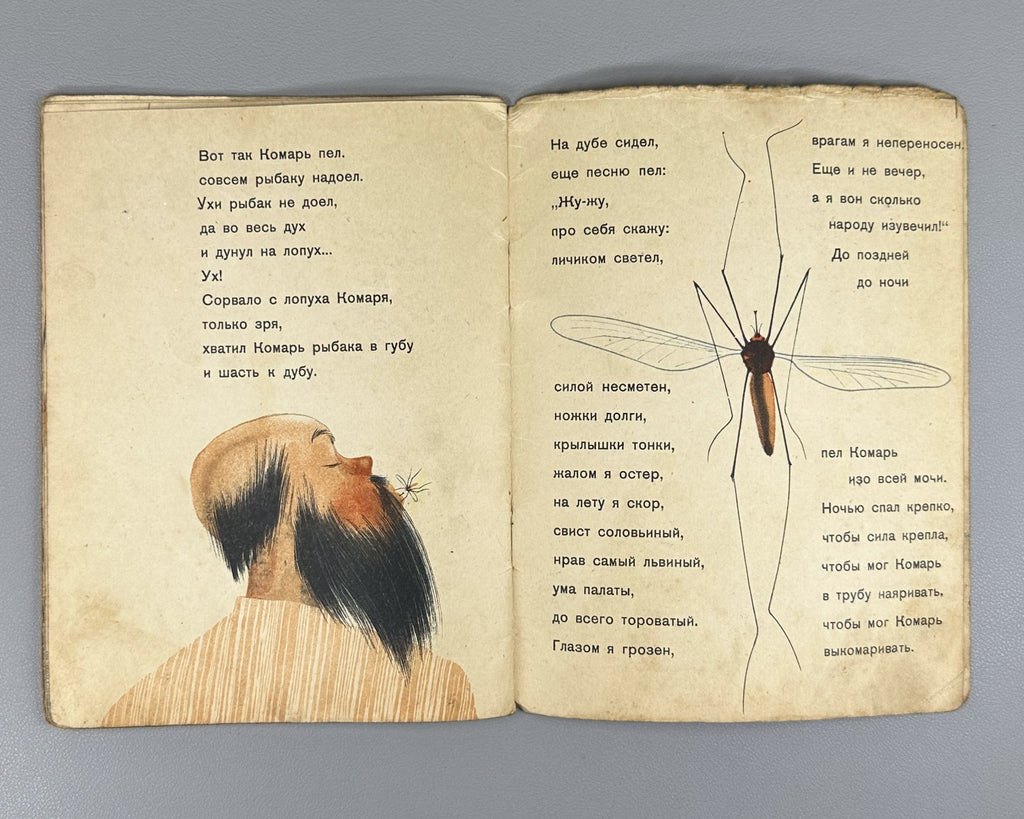 Вот так Комарь пел.
совсем рыбаку надоел.
Ухи рыбак не доел,
да во весь дух
и дунул на лопух...
Ух!
Сорвало с лопуха Комаря,
только зря,
хватил Комарь рыбака в губу
и шасть к дубу.
На дубе сидел,
еще песню пел:
„Жу-жу,
про себя скажу:
личиком светел,
силой несметен,
ножки долги,
крылышки тонки,
жалом я остер,
на лету я скор,
свист соловьиный,
нрав самый львиный,
ума палаты,
до всего тороватый.
Глазом я грозен,
врагам я непереносен.
Еще и не вечер,
а я вон сколько
народу изувечил!“
До поздней
до ночи
пел Комарь
изо всей мочи.
Ночью спал крепко,
чтобы сила крепла,
чтобы мог Комарь
в трубу наяривать,
чтобы мог Комарь
выкомаривать.